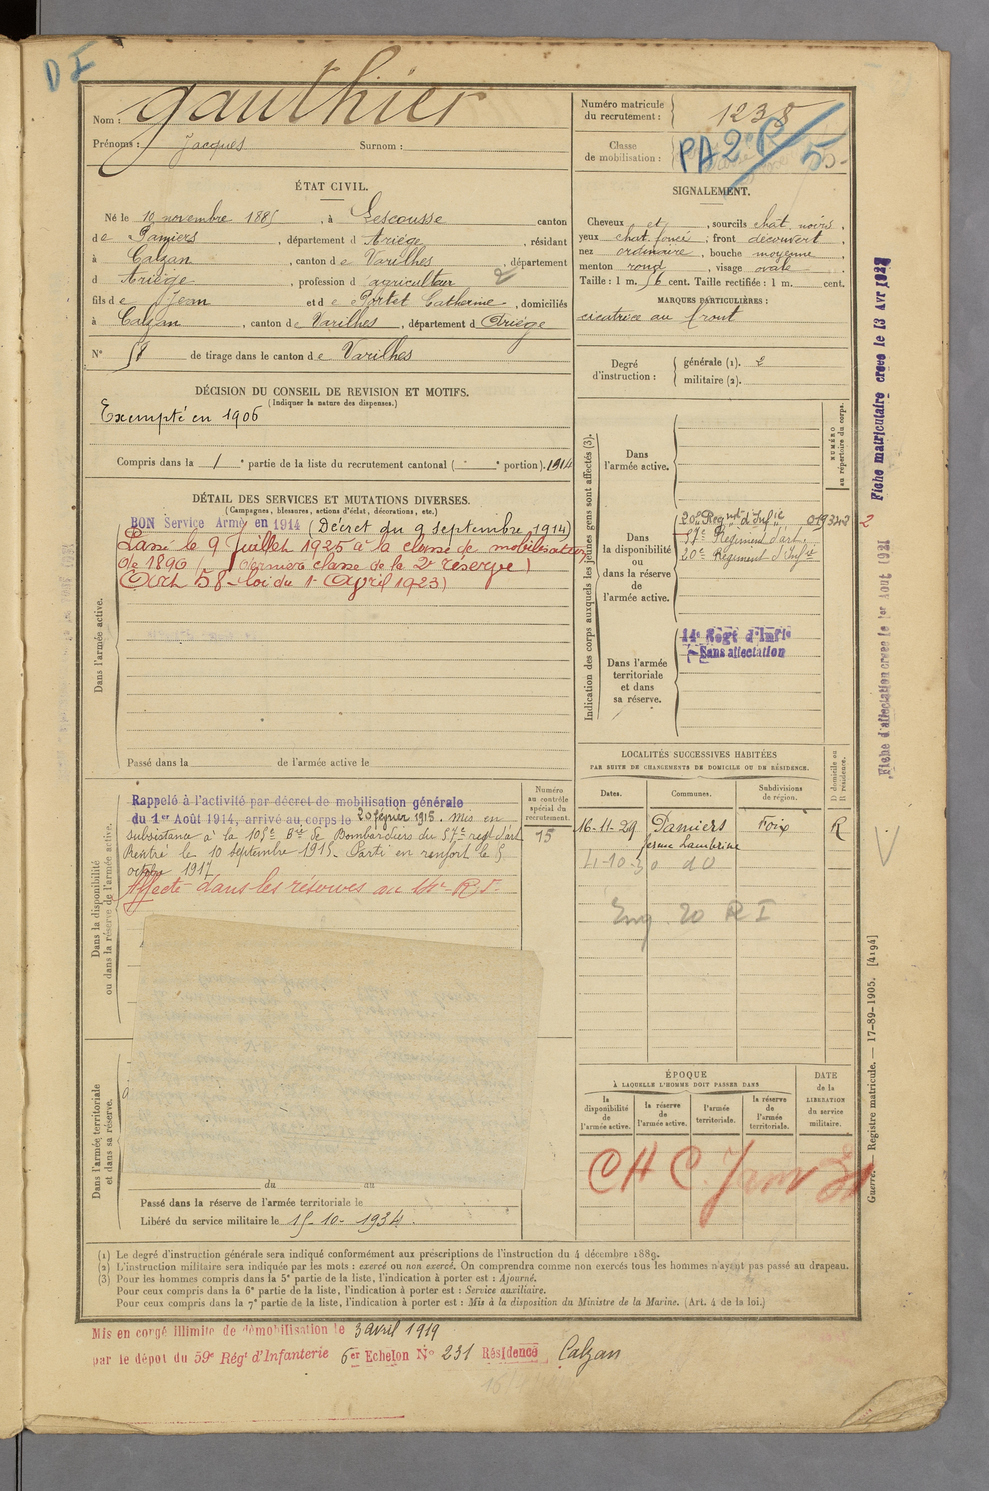 D I
Nom : Gauthier
Prénoms : Jacques Surnom :
Numéro matricule du recrutement : 1238
Classe de mobilisation :
PA 2e R/55
ÉTAT CIVIL.
Né le 10 novembre 1885, à Lescousse canton
de Pamiers, département d Ariège, résidant
à Calzan, canton de Varilhes, département
d Ariège, profession d agriculteur 2
fils de Jean et de Portet Catherine, domiciliés
à Calzan, canton de Varilhes, département d Ariège
N° 58 de tirage dans le canton de Varilhes
SIGNALEMENT.
Cheveux et, sourcils chat. noirs,
yeux chat. foncé ; front découvert,
nez ordinaire, bouche moyenne
menton rond, visage ovale
Taille : 1 m. 56 cent. Taille rectifiée : 1 m. cent.
MARQUES PARTICULIÈRES :
cicatrice au front
Degré d'instruction :
générale (1). 2
militaire (2).
DÉCISION DU CONSEIL DE REVISION ET MOTIFS.
(Indiquer la nature des dispenses.)
Exempté en 1906
Compris dans la 1e partie de la liste du recrutement cantonal ( e portion). 1914
DÉTAIL DES SERVICES ET MUTATIONS DIVERSES.
(Campagnes, blessures, actions d'éclat, décorations, etc.)
Dans l'armée active.
BON Service Armé en 1914 (Décret du 9 septembre 1914)
Passé le 9 Juillet 1925 à la classe de mobilisation
de 1890 (dernière classe de la 2e réserve)
(Art 58 - loi du 1er Avril 1923)
Passé dans la de l'armée active le
Indication des corps auxquels les jeunes gens sont affectés (3).
NUMÉRO au répertoire du corps.
Dans l'armée active.
Dans la disponibilité ou dans la réserve de l'armée active.
20e Regnt d'Infie 019342
57e Régiment d'art.
20e Régiment d'Infie
Dans l'armée territoriale et dans sa réserve.
14e Regt d'Infie
Sans affectation
Fiche matriculaire créée le 13 Avr 1927
2
Fiche d'affectation créée le 1er Aout 1931
Dans la disponibilité ou dans la réserve de l'armée active.
Rappelé à l'activité par décret de mobilisation générale
du 1er Août 1914, arrivé au corps le 20 février 1915. Mis en
subsistance à la 105e Bie de Bombardiers du 57e regt d'art
Rentré le 10 septembre 1915. Parti en renfort le 5
octobre 1917
Affecté dans les réserves au 14e R.I.
Numéro au contrôle spécial du recrutement.
15
LOCALITÉS SUCCESSIVES HABITÉES
PAR SUITE DE CHANGEMENTS DE DOMICILE OU DE RÉSIDENCE.
Dates. Communes. Subdivisions de région. D domicile ou R résidence.
16-11-29 Pamiers Foix R
ferme Lambrine
4-10-30 do
Eng. 20 R I
ÉPOQUE
À LAQUELLE L'HOMME DOIT PASSER DANS
la disponibilité de l'armée active.
la réserve de l'armée active.
l'armée territoriale.
la réserve de l'armée territoriale.
DATE de la LIBÉRATION du service militaire.
CHC. Janv 31
Dans l'armée territoriale et dans sa réserve.
du au
Passé dans la réserve de l'armée territoriale le
Libéré du service militaire le 15-10-1934.
Guerre. — Registre matricule. — 17-89-1905. [4194]
(1) Le degré d'instruction générale sera indiqué conformément aux prescriptions de l'instruction du 4 décembre 1889.
(2) L'instruction militaire sera indiquée par les mots : exercé ou non exercé. On comprendra comme non exercés tous les hommes n'ayant pas passé au drapeau.
(3) Pour les hommes compris dans la 5e partie de la liste, l'indication à porter est : Ajourné.
Pour ceux compris dans la 6e partie de la liste, l'indication à porter est : Service auxiliaire.
Pour ceux compris dans la 7e partie de la liste, l'indication à porter est : Mis à la disposition du Ministre de la Marine. (Art. 4 de la loi.)
Mis en congé illimité de démobilisation le 3 avril 1919
par le dépôt du 59e Régt d'Infanterie 6er Echelon N° 231 Résidence Calzan